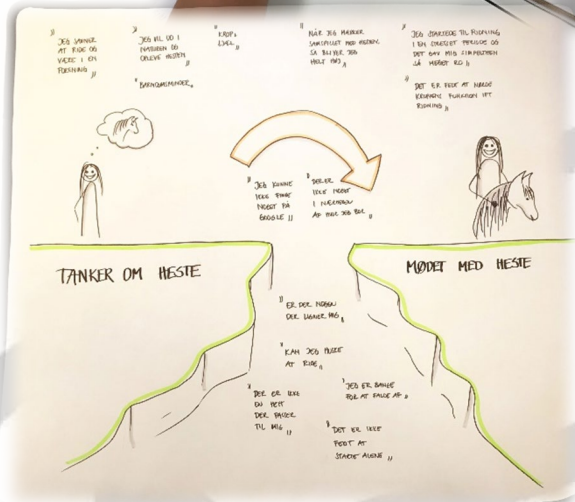 "JEG SAVNER
AT RIDE OG
VÆRE I EN
FORENING"
"JEG VIL UD I
NATUREN OG
OPLEVE HESTEN"
"BARNDOMSMINDER"
"KROP &
SJÆL"
"NÅR JEG MÆRKER
SAMSPILLET MED HESTEN,
SÅ BLIVER JEG
HELT HØJ"
"JEG STARTEDE TIL RIDNING
I EN STRESSET PERIODE OG
DET GAV MIG SIMPELTHEN
SÅ MEGET RO"
"DET ER FEDT AT MÆRKE
KROPPENS FUNKTION IFT
RIDNING"
"JEG KUNNE
IKKE FINDE
NOGET PÅ
GOOGLE"
"DER ER
IKKE NOGET
I NÆRHEDEN
AF HVOR JEG BOR"
TANKER OM HESTE
MØDET MED HESTE
"ER DER NOGEN
DER LIGNER MIG"
"KAN JEG HUSKE
AT RIDE"
"DER ER IKKE
EN HEST
DER PASSER
TIL MIG"
"JEG ER BANGE
FOR AT FALDE AF"
"DET ER IKKE
FEDT AT
STARTE ALENE"